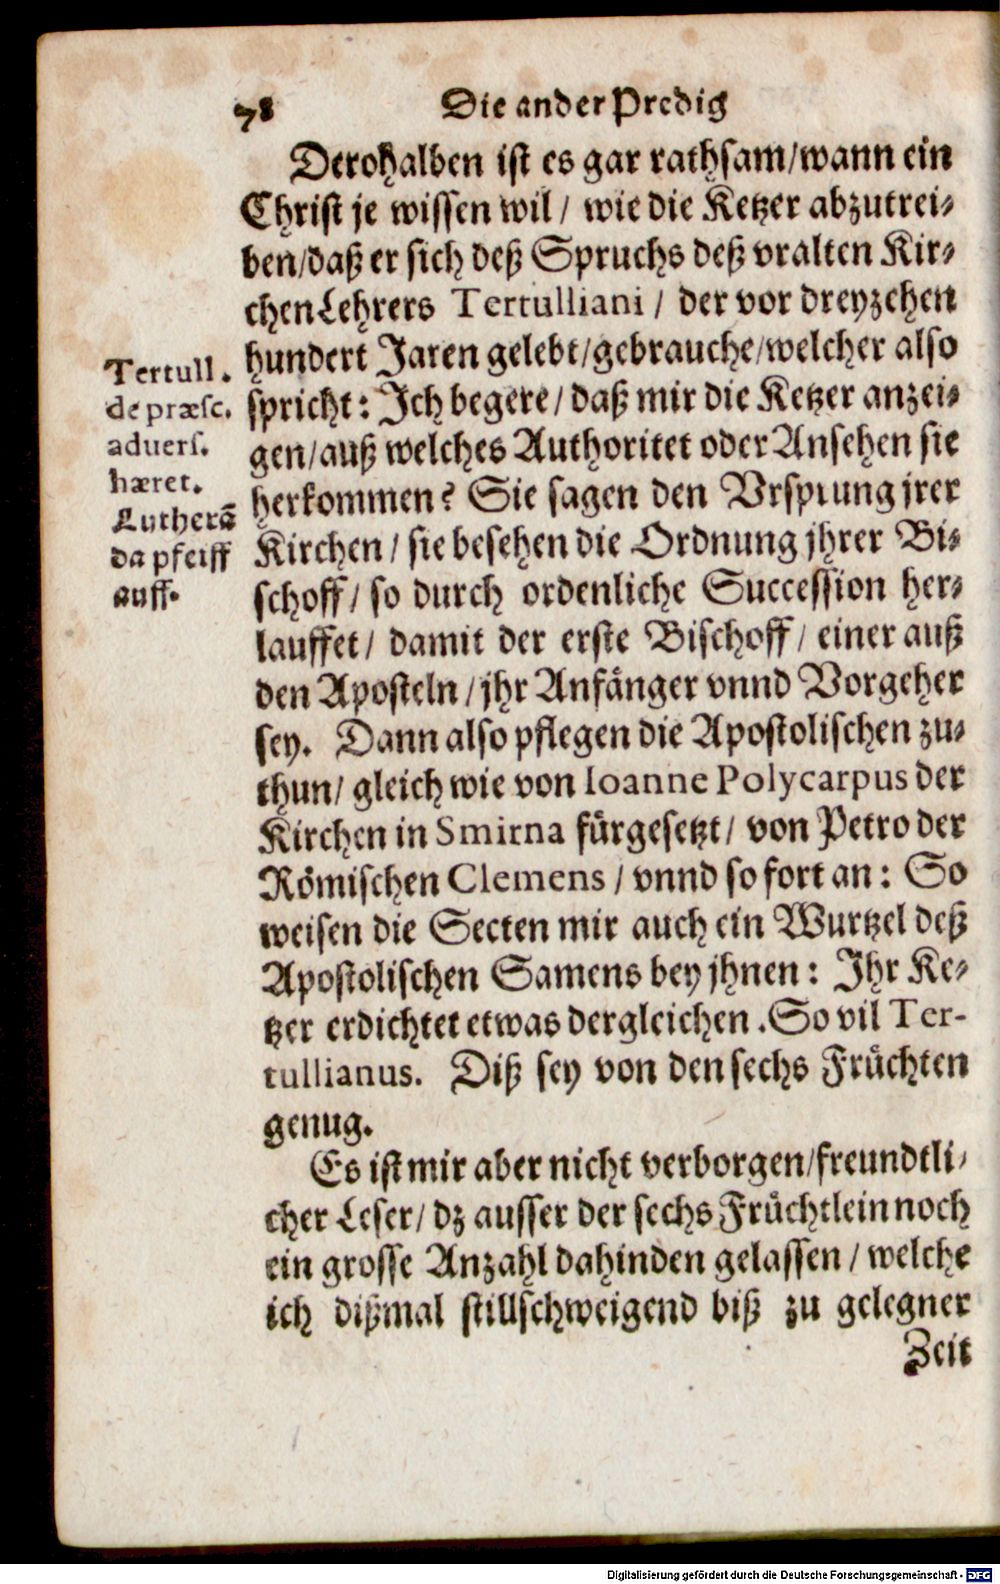 78 Die ander Predig
Derohalben ist es gar rathsam/wann ein
Christ je wissen wil/ wie die Ketzer abzutrei-
ben/daß er sich deß Spruchs deß vralten Kir-
chenLehrers Tertulliani/ der vor dreyzehen
hundert Jaren gelebt/gebrauche/welcher also
spricht: Ich begere/ daß mir die Ketzer anzei-
gen/auß welches Authoritet oder Ansehen sie
herkommen? Sie sagen den Vrsprung jrer
Kirchen/ sie besehen die Ordnung jhrer Bi-
schoff/ so durch ordenliche Succession her-
lauffet/ damit der erste Bischoff/ einer auß
den Aposteln/jhr Anfänger vnnd Vorgeher
sey. Dann also pflegen die Apostolischen zu-
thun/ gleich wie von Ioanne Polycarpus der
Kirchen in Smirna fürgesetzt/ von Petro der
Römischen Clemens/ vnnd so fort an: So
weisen die Secten mir auch ein Wurtzel deß
Apostolischen Samens bey jhnen: Ihr Ke-
tzer erdichtet etwas dergleichen. So vil Ter-
tullianus. Diß sey von den sechs Früchten
genug.
Es ist mir aber nicht verborgen/freundtli-
cher Leser/ dz ausser der sechs Früchtlein noch
ein grosse Anzahl dahinden gelassen/ welche
ich dißmal stillschweigend biß zu gelegner
Zeit
Tertull.
de præsc.
aduers.
hæret.
Lutherã
da pfeiff
auff.
Digitalisierung gefördert durch die Deutsche Forschungsgemeinschaft - DFG